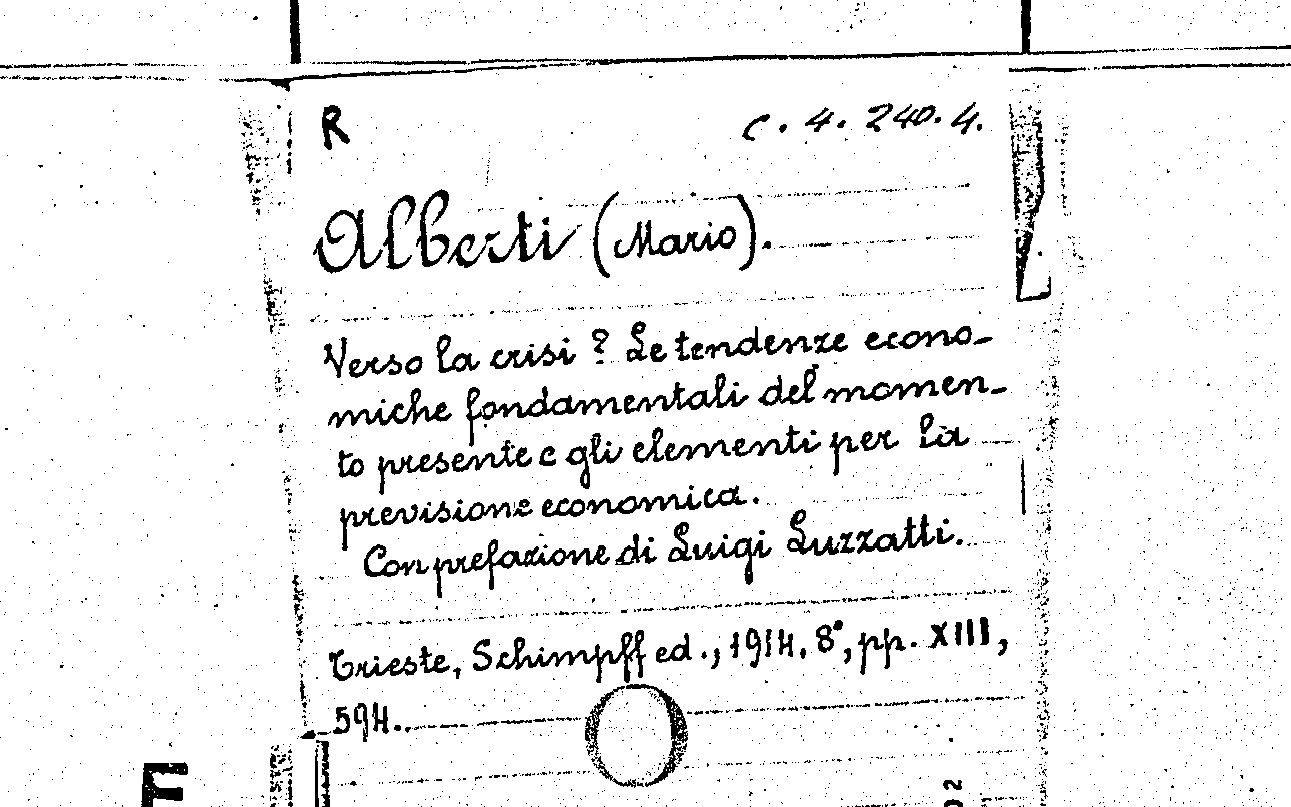 R
C. 4. 240. 4.
Alberti (Mario).
Verso la crisi ? Le tendenze econo-
miche fondamentali del momen-
to presente e gli elementi per la
previsione economica.
Con prefazione di Luigi Luzzatti.
Trieste, Schimpff ed., 1914. 8°, pp. XIII,
594.